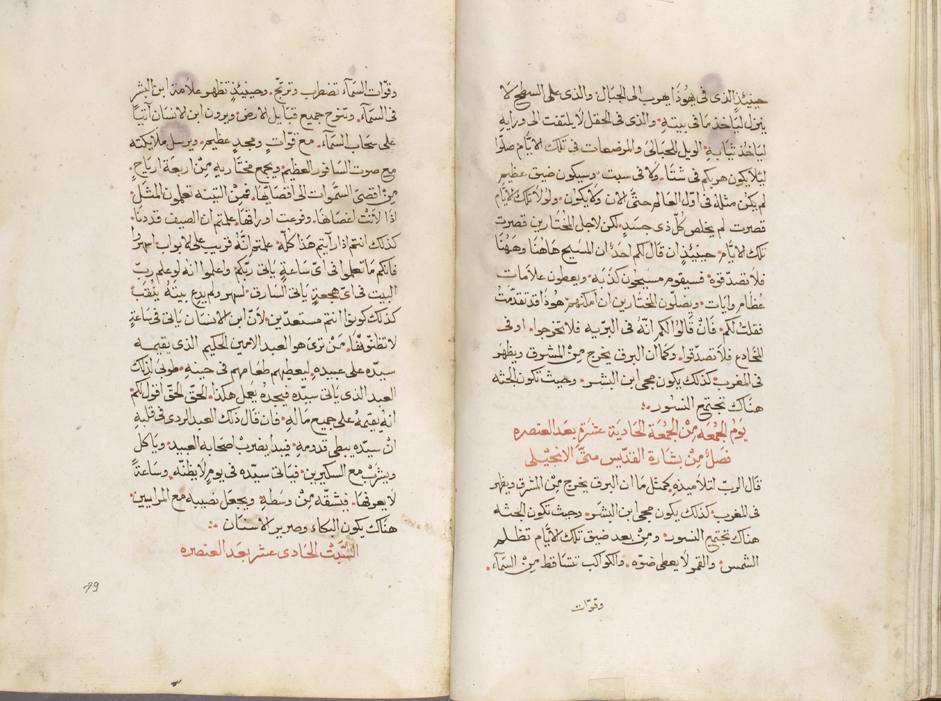 حينيذٍ الذى فى يهوذا يهرب الى الجبال. والذى على السطح لا
ينزل لياخذ ما فى بيته. والذى فى الحقل لا يلتفت الى ورايه
لياخذ ثيابه. الويل للحبالى والمرضعات فى تلك الايام. صلوا
ليلا يكون هربكم فى شتا. ولا فى سبت. وسيكون ضيق عظيم
لم يكن مثله فى اول العالم حتى الان ولا يكون. ولولا تلك الايام
قصرت لم يخلص كل ذى جسد. لكن لاجل المختارين قصرت
تلك الايام. حينيذٍ ان قال لكم احد ان المسيح هاهنا وههنا
فلا تصدقوه. فسيقوم مسيحون كذبه. ويعطون علامات
عظام وايات. ويضلون المختارين ان امكنهم. هوذا قد تقدمت
فقلت لكم. فان قالوا لكم انه فى البريه فلا تخرجوا. او فى
المخادع فلا تصدقوا. وكما ان البرق يخرج من المشرق ويظهر
فى المغرب كذلك يكون مجى ابن البشر. وحيث تكون الجثه
هناك تجتمع النسور.
يوم الجمعه من الجمعة الحادية عشرة بعد العنصره
فصل من بشارة القديس متى الانجيلى
قال الرب لتلاميذه كمثل ما ان البرق يخرج من المشرق ويظهر
فى المغرب. كذلك يكون مجى ابن البشر. وحيث تكون الجثه
هناك تجتمع النسور. ومن بعد ضيق تلك الايام تظلم
الشمس. والقمر لا يعطى ضوه. والكواكب تتساقط من السمآء.
وقوات
وقوات السمآء تضطرب وترتج. وحينيذٍ تظهر علامة ابن البشر
فى السمآء. وتنوح جميع قبايل الارض ويرون ابن الانسان آتيا
على سحاب السمآء. مع قوات ومجد عظيم. ويرسل ملايكته
مع صوت السافور العظيم. ويجمع مختاريه من اربعة ارياح.
من اقصى السموات الى اقصايها. فمن التينه تعلمون المثل.
اذا لانت اغصانها. وفرعت اوراقها. علمتم ان الصيف قد دنا.
كذلك انتم اذا رايتم هذا كله. علمتم انه قريب على الابواب. اسهروا
فانكم ما تعلموا فى اى ساعةٍ ياتى ربكم. واعلموا انه لو علم رب
البيت فى اى هجعةٍ ياتى السارق. لسهر ولم يدع بيته ينقب
كذلك كونوا انتم مستعدين. لان ابن الانسان ياتى فى ساعةٍ
لا تظنونها. من ترى هو العبد الامين الحكيم الذى يقيمه
سيده على عبيده. ليعطيهم طعامهم فى حينه. طوبى لذلك
العبد الذى ياتى سيده فيجده يعمل هكذا. الحق الحق اقول لكم
انه يقيمه على جميع ماله. فان قال ذلك العبد الردى فى قلبه
ان سيده يبطى قدومه. فيبدا يضرب اصحابه العبيد. وياكل
ويشرب مع السكيرين. فياتى سيده فى يومٍ لا يظنه. وساعةٍ
لا يعرفها. فيشقه من وسطه. ويجعل نصيبه مع المرايين.
هناك يكون البكاء وصرير الاسنان
السبت الحادى عشر بعد العنصره
79